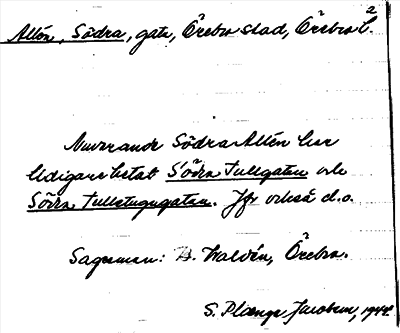 2
Allén, Södra, gata, Örebro stad, Örebro l.
Nuvarande Södra Allén har
tidigare hetat Södra Tullgatan och
Södra Tullstugugatan. Jfr också d.o.
Sagesman: A. Waldén, Örebro.
S. Plænge Jacobson, 1944.